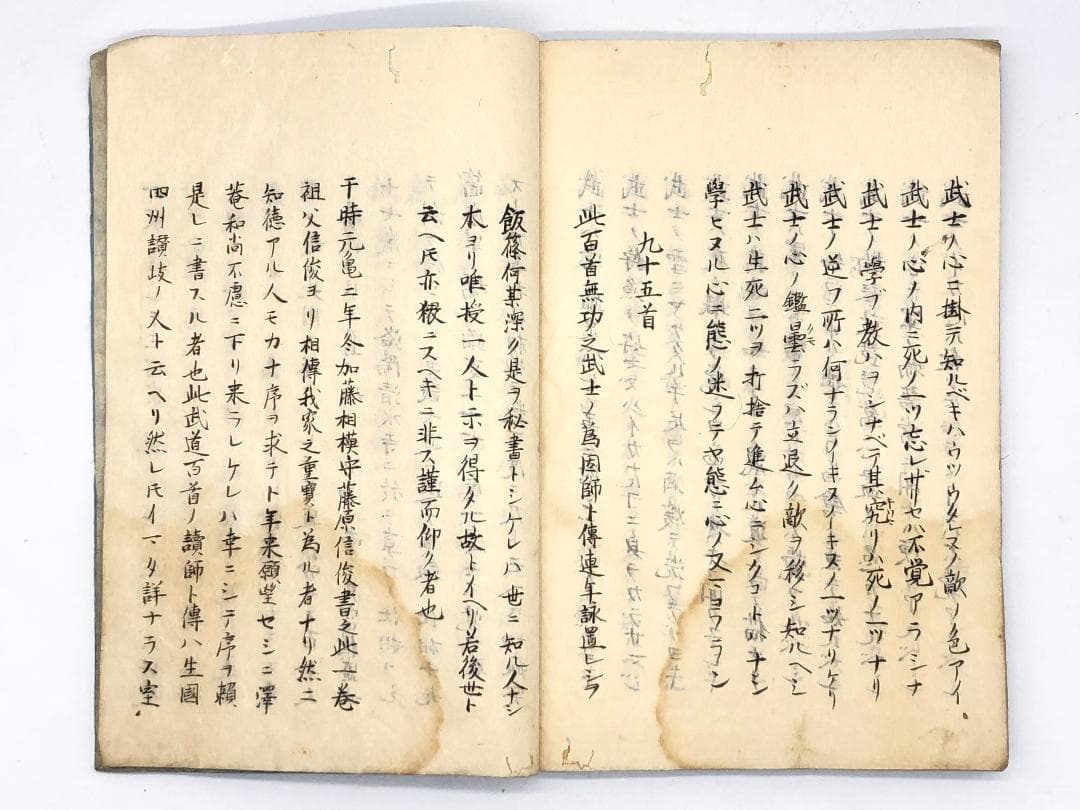 武士ノ心ニ掛テ知ルベキハウツウタレヌノ敵ノ色アイ
武士ノ心ノ内ニ死ノ一ツ忘レザセハ不覚アラシナ
武士ノ學ブ教ハヲシナベテ其究リハ死ノ一ツナリ
武士ノ逆フ所ハ何ナラン
武士ノ心ノ鑑曇ラズハ立退ク敵ヲ移シ知ルヘシ
武士ハ生死二ツヲ打捨テ進ム心ニシクコトハナシ
學ヒヌル心ニ態ノ迷フテヤ態ニ心ノ又ヨラン
九十五首
此百首無功之武士ノ為因師ト傳連年詠置レシヲ
飯篠何某深ク是ヲ秘書トシケレハ世ニ知ル人ナシ
本ヨリ唯授一人ト示ヲ得タル故トイヘリ若後世ト
云ヘ𪜈亦猥ニスヘキニ非ス謹而仰ク者也
干時元亀二年冬加藤相模守藤原信俊書之此一巻
祖父信俊ヨリ相傳我家之重寶ト為ル者ナリ然ニ
知徳アル人モカナ序ヲ求テト年来願望セシニ澤
菴和尚不慮ニ下リ来ラレケレハ幸ニシテ序ヲ頼
是レニ書スル者也此武道百首ノ讀師ト傳ハ生國
四州讃岐ノ人ト云ヘリ然レ𪜈イマタ詳ナラス室